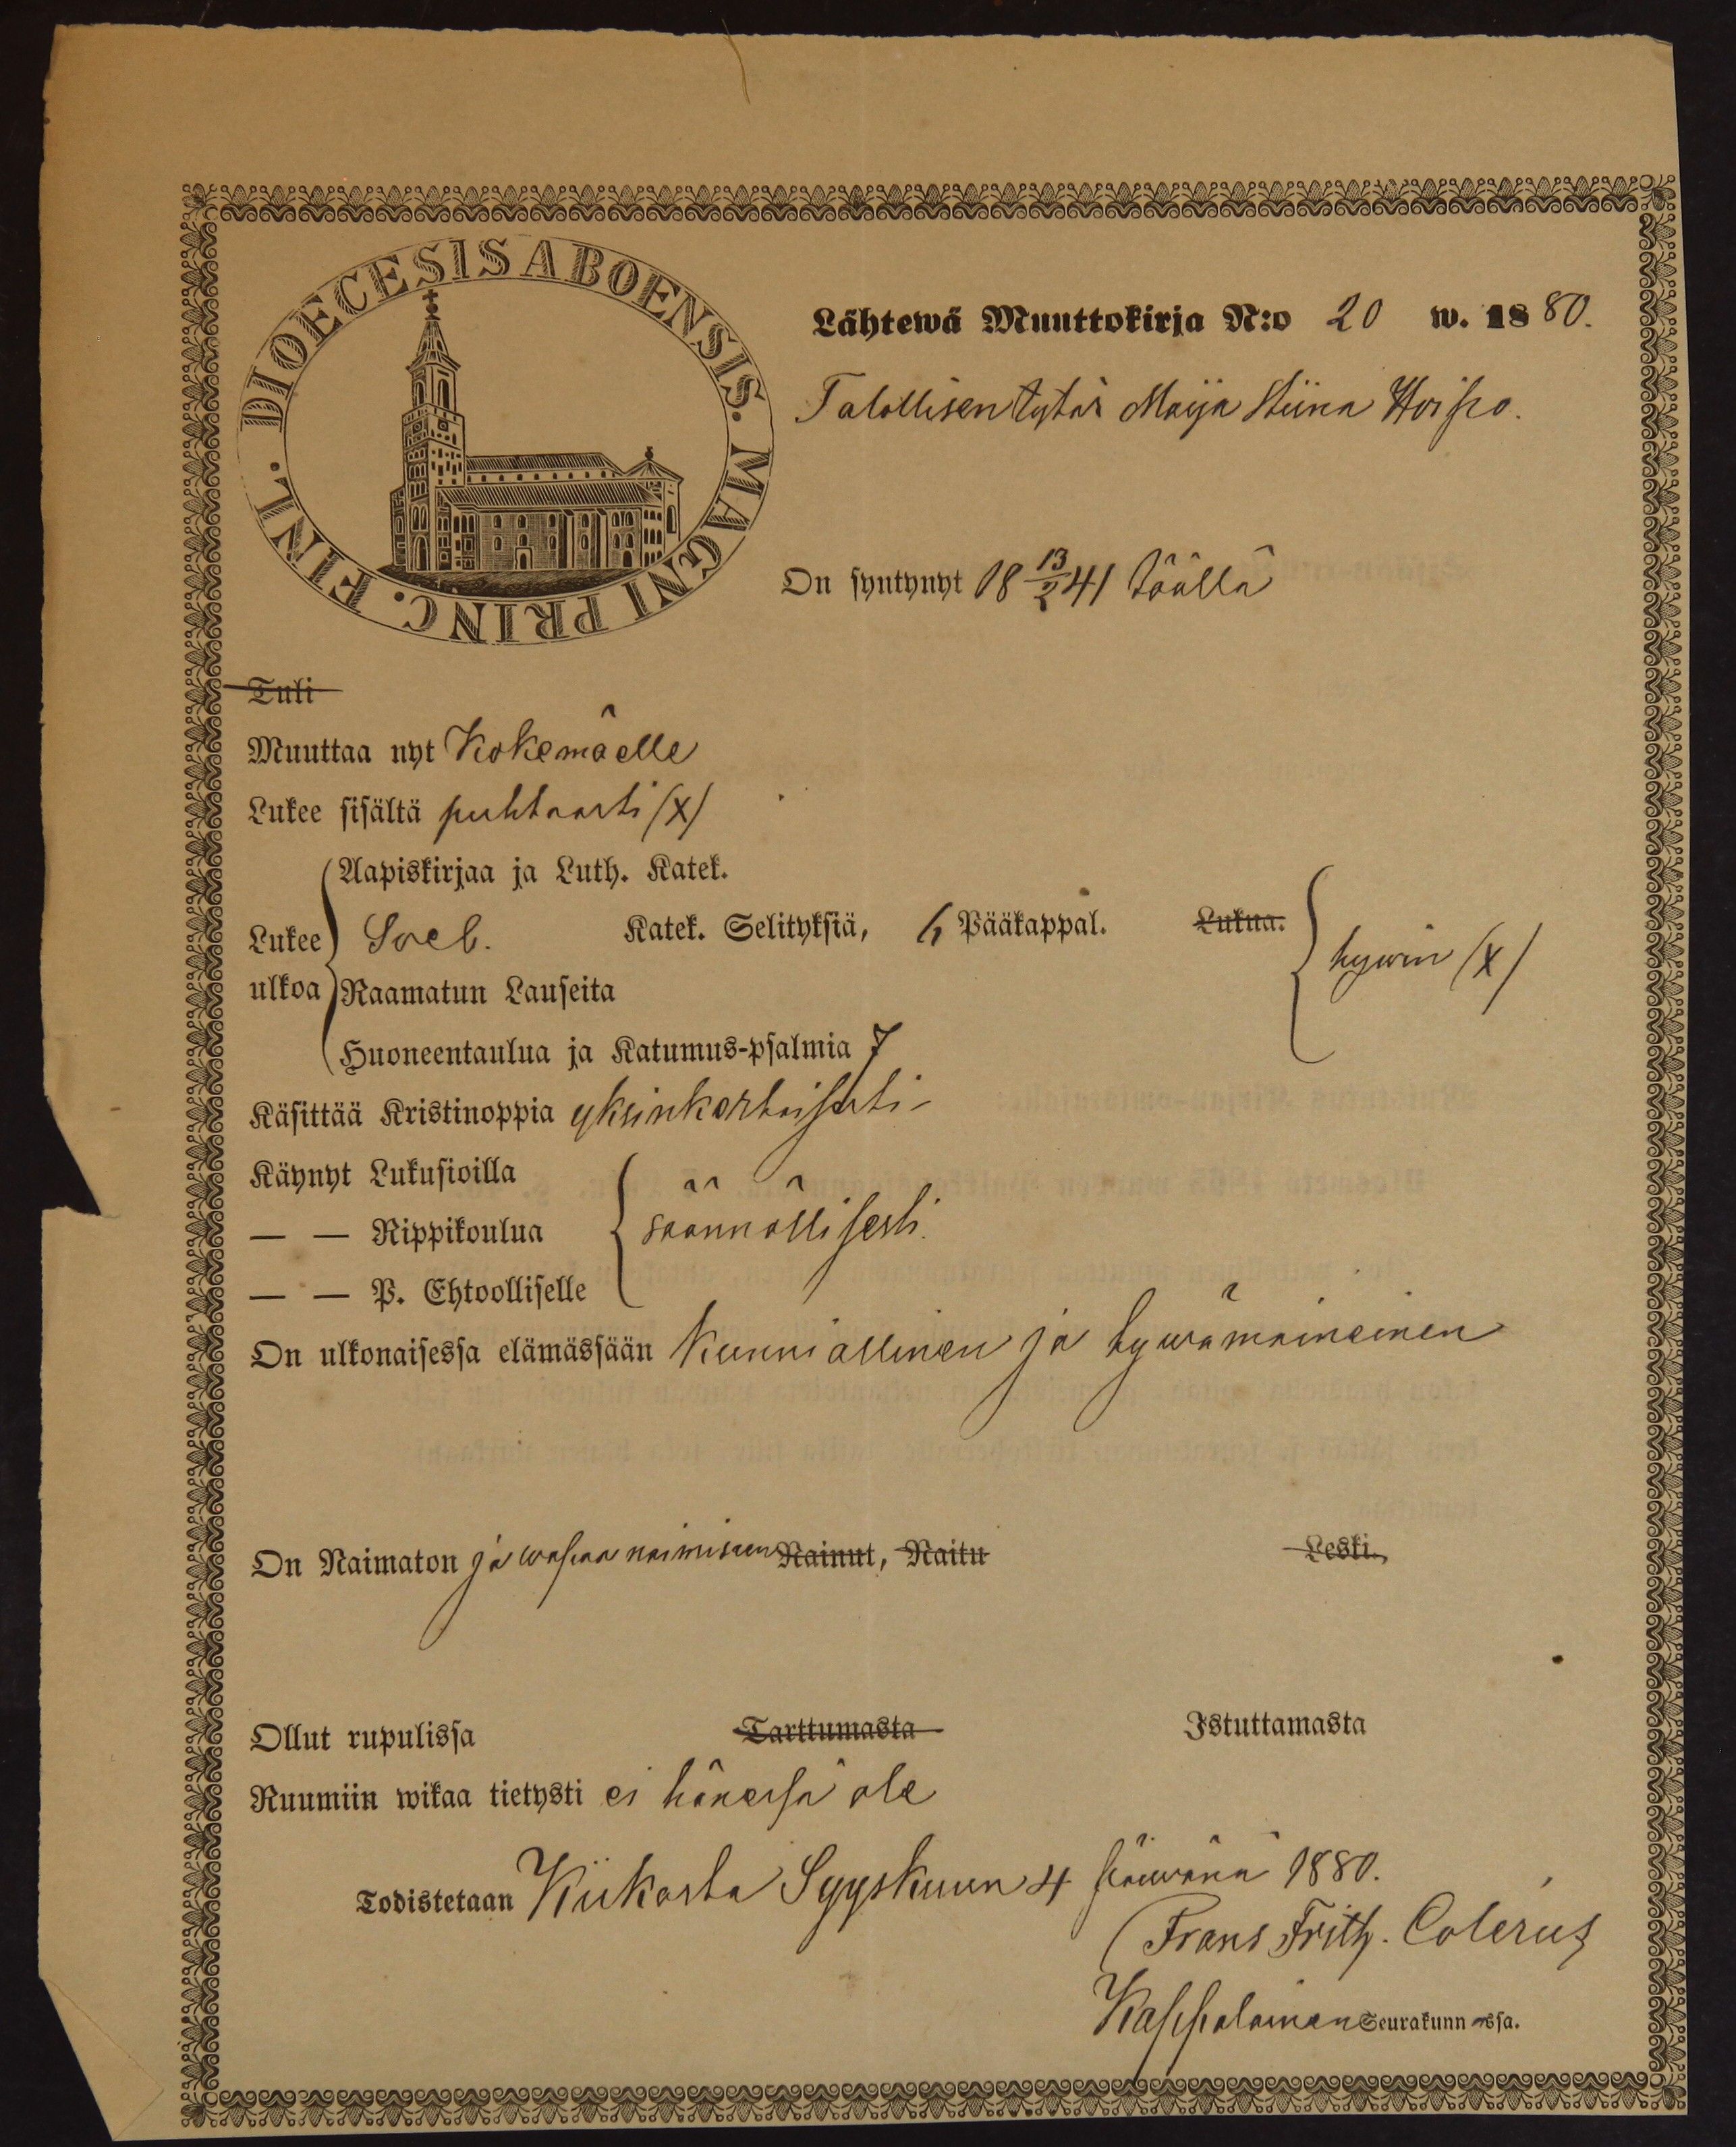 DIOECESIS ABOENSIS. MAGNI PRINC. FINL.
Lähtewä Muuttokirja N:o 20 w. 1880.
Talollisen tytär Maija Stiina
On syntynyt 18 13/2 41 täällä
Tuli
Muuttaa nyt Kokemäelle
Lukee sisältä puhtaasti (X)
Aapiskirjaa ja Luth. Katek.
Lukee ulkoa Sveb. Katek. Selityksiä, 6 Pääkappal. Lukua. hywin (X)
Raamatun Lauseita
Huoneentaulua ja Katumus-psalmia 7
Käsittää Kristinoppia yksinkertaisesti
Käynyt Lukusioilla
— — Rippikoulua säännöllisesti.
— — P. Ehtoolliselle
On ulkonaisessa elämässään Kunniallinen ja hywämaineinen
On Naimaton ja wapaa naimiseen Nainut, Naitu Leski.
Ollut rupulissa Tarttumasta Istuttamasta
Ruumiin wikaa tietysti ei hänessä ole
Todistetaan Kiikasta Syyskuun 4 päiwänä 1880.
Frans Frith. Colerus
Kappalainen Seurakunnassa.